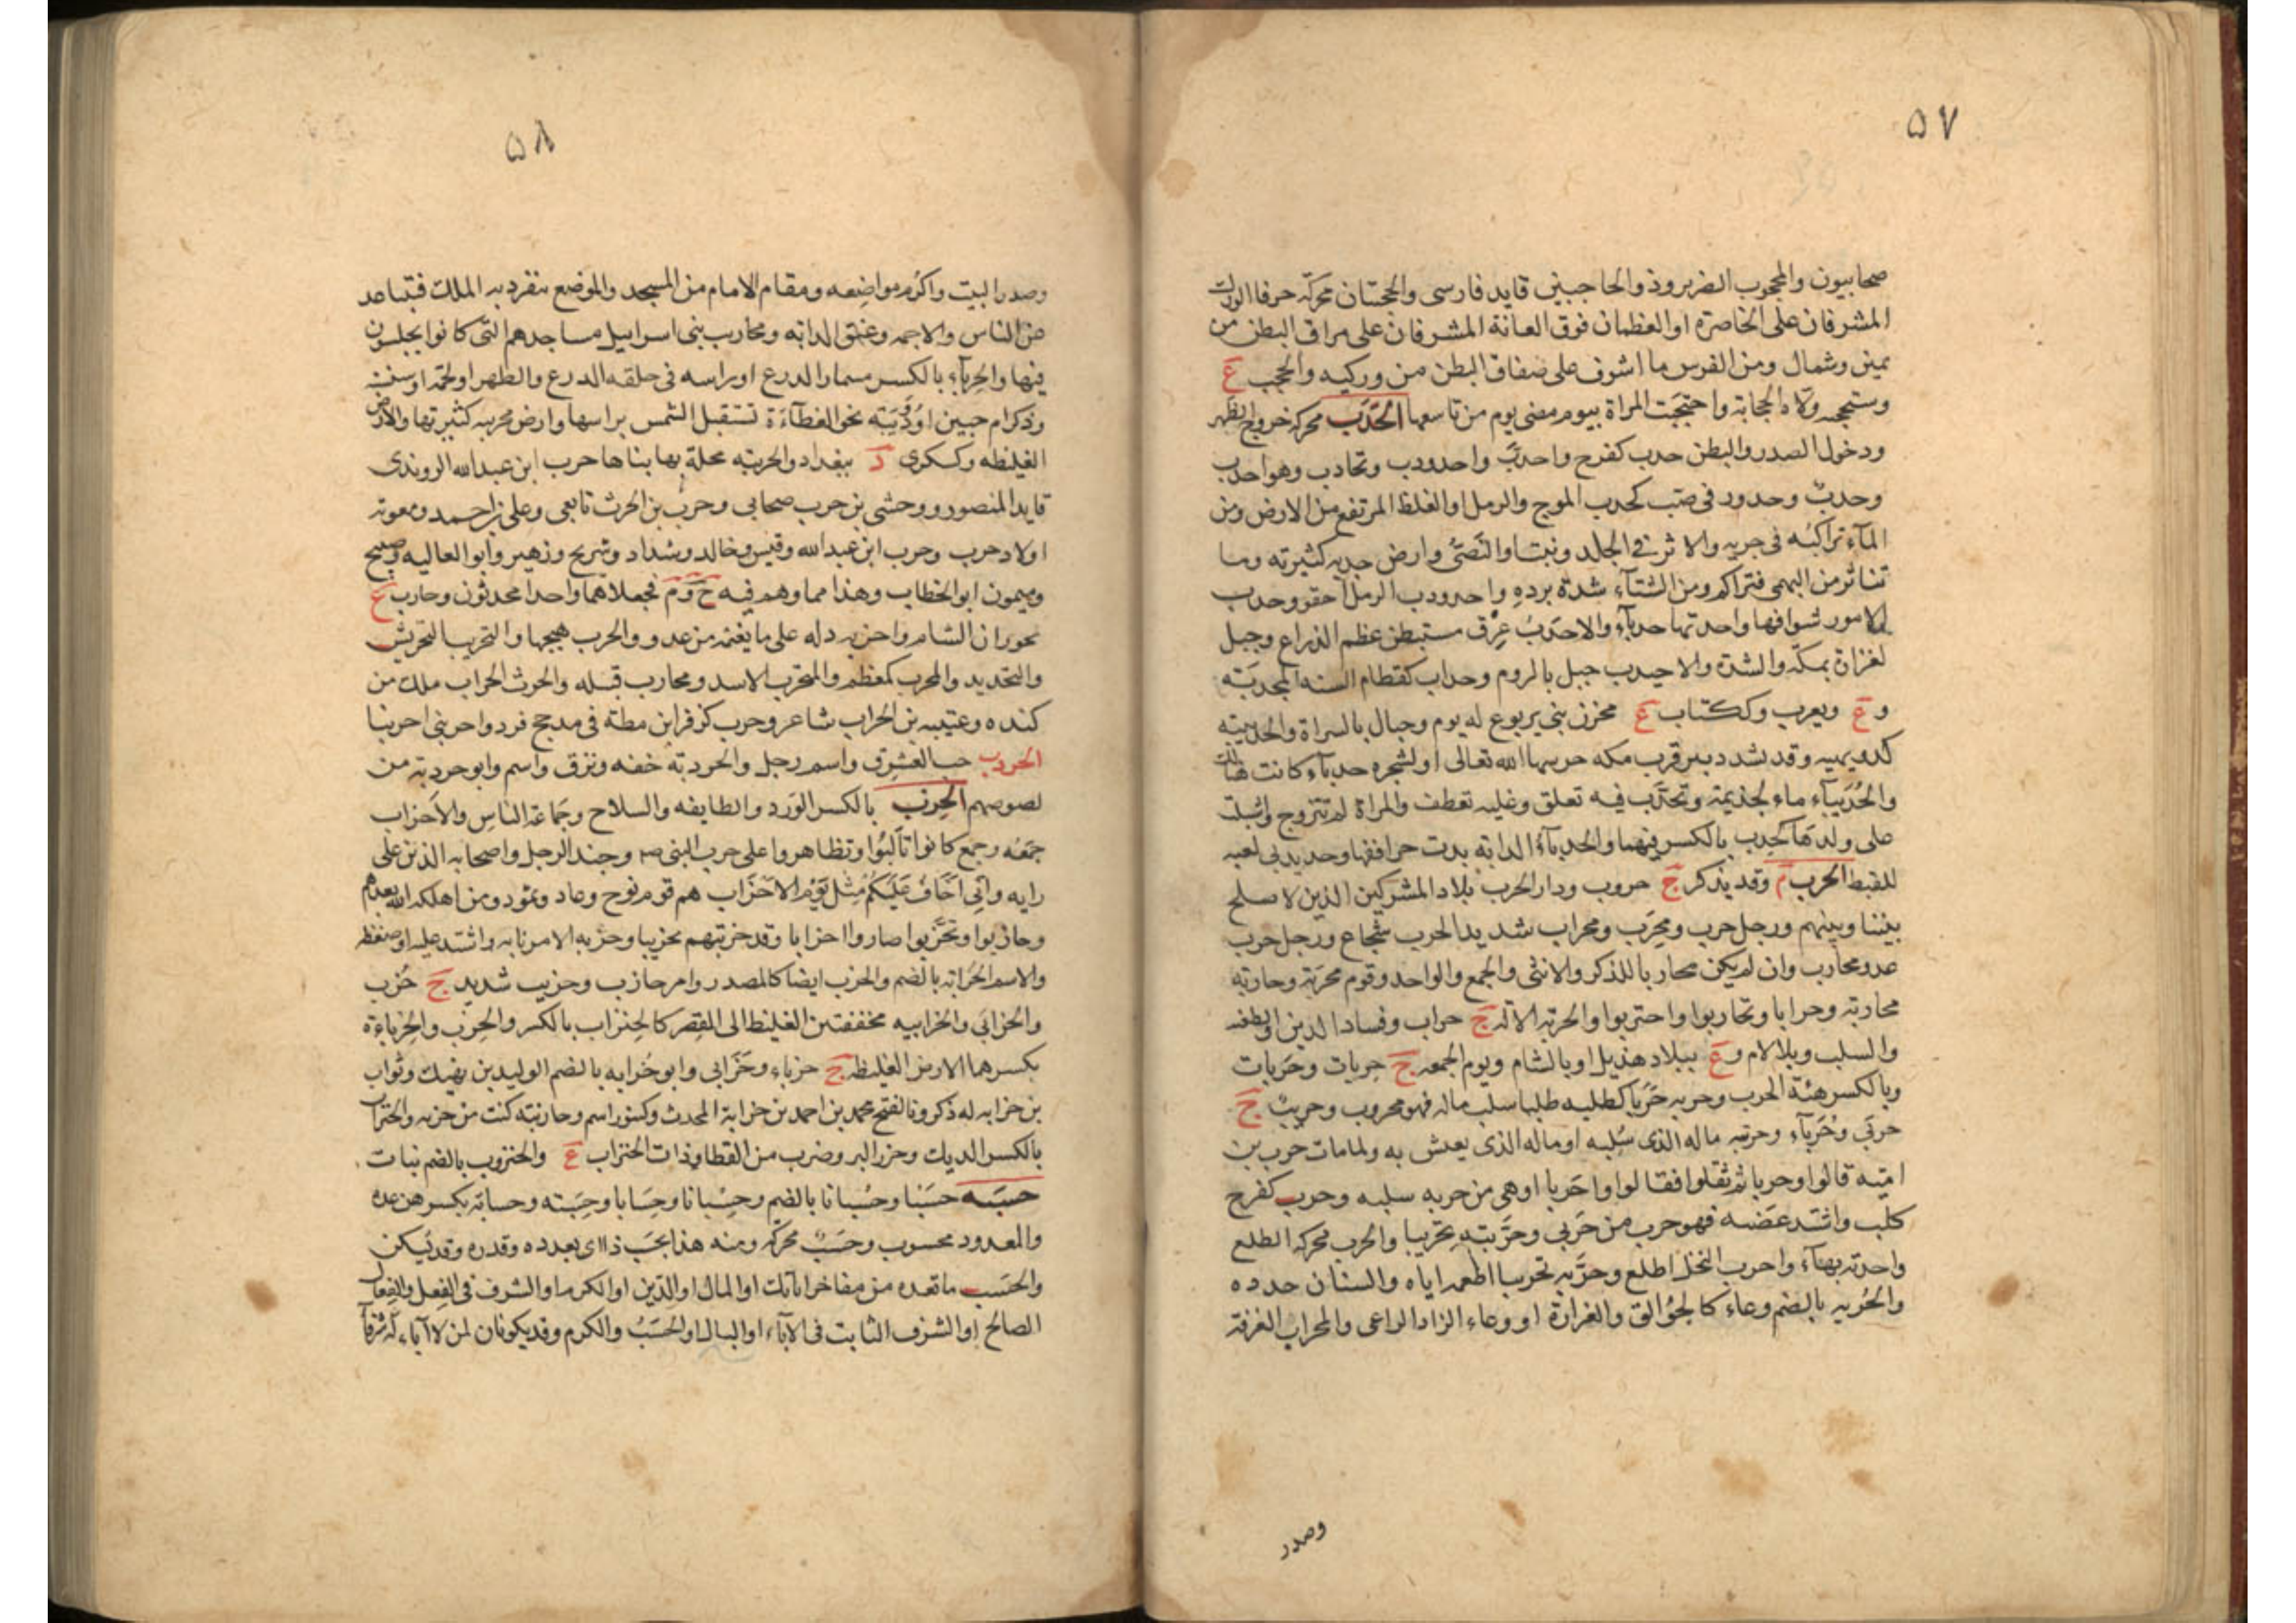 ٥٧
صحابيون والمحجوب الضرير وذو الحاجبين قايد فارسى والحجبتان محركة حرفا الورك
المشرفان على الخاصرة او العظمان فوق العانة المشرفان على مراق البطن من
يمين وشمال ومن الفرس ما اشرف على صفاق البطن من وركيه والحجيب ع
وستحجبه ولاه الحجابة واحتجبت المراة بيوم مضى يوم من تاسعها الحَدَب محركة خروج الظهر
ودخول الصدر والبطن حدب كفرح واحدب واحدودب وتحادب وهو احدب
وحدب وحدور فى صبب كحدب الموج والرمل او الغلظ المرتفع من الارض ومن
المآء تراكبه فى جريه والاثر فى الجلد ونبت او النصى وارض حدبه كثيرته وما
تناثر من البهمى فتراكم ومن الشتآء شدة برده واحدودب الرمل احقوقف وحدب
الامور شوافها واحدتها حدبآء والاحدب عرق مستبطن عظم الذراع وجبل
لفزارة بمكة والشدة والاحيدب جبل بالروم وحداب كقطام السنه المجدبة
و ع ويعرب وككتاب ع بحزن بنى يربوع له يوم وجبال بالسراة والحديبية
كدويهيه وقد تشدد بير قرب مكه حرسها الله تعالى او لشجره حدبآء كانت هناك
والحُدَيبآء ماء لجذيمة وتحدب فيه تعلق وعليه تعطف والمراة لم تتزوج واشبلت
على ولدها كحدب بالكسر فيهما والحدبآء الدابة بدت حراقفها وحديدبى لعبه
للقبط الحرب م وقد يذكر ج حروب ودار الحرب بلاد المشركين الذين لا صلح
بيننا وبينهم ورجل حرب ومحرب ومحراب شديد الحرب شجاع ورجل حرب
عدو محارب وان لم يكن محاربا للذكر والانثى والجمع والواحد وقوم محربة وحاربه
محاربة وحرابا وتحاربوا واحتربوا والحربة الالة ج حراب وفساد الدين والطعنه
والسلب وبلالام و ع ببلاد هذيل او بالشام ويوم الجمعه ج حربات وحَرَبات
وبالكسر هئة الحرب وحربه حَرَبا كطلبه طلبا سلب ماله فهو محروب وحريب ج
حربى وحُرَبآء وحريبته ماله الذى سُلبه او ماله الذى يعش به ولما مات حرب بن
امية قالوا وحربا ثم ثقلوا فقالوا واحَرَبا او هى من حربه سلبه وحرب كفرح
كلب واشتد غضبه فهو حرب من حَربى وحرَّبته تحريبا والحرب محركه الطلع
واحدته بهآء واحرب النخل اطلع وحرَّبه تحريبا اطعمه اياه والسنان حدده
والحُربه بالضم وعاء كالجُوالق والغرارة او وعاء الزاد الراعى والمحراب الغرفة
وصدر
٥٨
وصدر البيت واكرم مواضعه ومقام الامام من المسجد والموضع ينفرد به الملك فتباعد
عن الناس والاجمه وعنق الدابه ومحارب بنى اسراييل مساجدهم التى كانوا يجلسون
فيها والحِربآء بالكسر مسمار الدرع او راسه فى حلقه الدرع والظهر او لحمه او سنسنه
وذكر ام حبين او دُوَيبه نحو العظآءة تستقبل الشمس براسها وارض محربه كثيرتها والارض
الغليظه وكسكرى د ببغداد والحربيه محلة بها بناها حرب ابن عبدالله الروندى
قايد المنصور ووحشى بن حرب صحابى وحرب بن الحرث تابعى وعلى واحمد ومعوية
اولاد حرب وحرب ابن عبدالله وقيس وخالد وشداد وشريح وزهير وابو العاليه وصبيح
وميمون ابو الخطاب وهذا مما وهم فيه خ و م فجعلاهما واحدا محدثون وحارب ع
بحوران الشام واحربه دله على ما يغنمه من عدو والحرب هيجها والتحريب التحريش
والتحديد والمحرب كمعظم والمتحرب الاسد ومحارب قبيله والحرث الحراب ملك من
كنده وعتيبه بن الحراب شاعر وحرب كزفر ابن مظة فى مدحج فرد واحربنى احربنا
الحردب حب العشرق واسم رجل والحردبة خفه ونزق واسم وابو حردبة من
لصوصهم الحِزب بالكسر الوَرد والطايفه والسلاح وجماعة الناس والاحزاب
جمعُه وجمع كانوا تالبوا وتظاهروا على حرب النبى صم وجند الرجل واصحابه الذين على
رايه وانى اخاف عليكم مثل يوم الاحزاب هم قوم نوح وعاد وثمود ومن اهلكه الله بعدهم
وحازبوا وتحزبوا صاروا احزابا وقد حزبتهم تحزيبا وحزبه الامر نابه واشتد عليه او ضغطه
والاسم الحُزابة بالضم والحزب ايضا كالمصدر وامر حازب وحزيب شديد ج حُزب
والحزابى والحزابيه مخففتين الغليظ الى القصر كالحِنزاب بالكسر والحِزب والحِزباءة
بكسرهما الارض الغليظه ج حزباء وحَزَابى وابو حُزابه بالضم الوليد بن نهيك وثواب
بن حزابه له ذكر وبالفتح محمد بن احمد بن حزابة المحدث وكنور اسم وحازبته كنت من حزبه والحنزاب
بالكسر الديك وجزر البر وضرب من القطا وذات الحنزاب ع والحنزوب بالضم نبات
حسَبه حسَبا وحُسبانا بالضم وحِسبانا وحِسابا وحِسبَته وحسابة بكسرهن عده
والمعدود محسوب وحَسَب محركه ومنه هذا بحَسَب ذا اى بعدده وقدره وقد يسكن
والحَسَب ما تعده من مفاخر اباتك او المال او الدين او الكرم او الشرف فى الفعل والفعال
الصالح او الشرف الثابت فى الابآء او البال او الحَسَبُ والكرم وقد يكونان لمن لا آباء له شرفآ